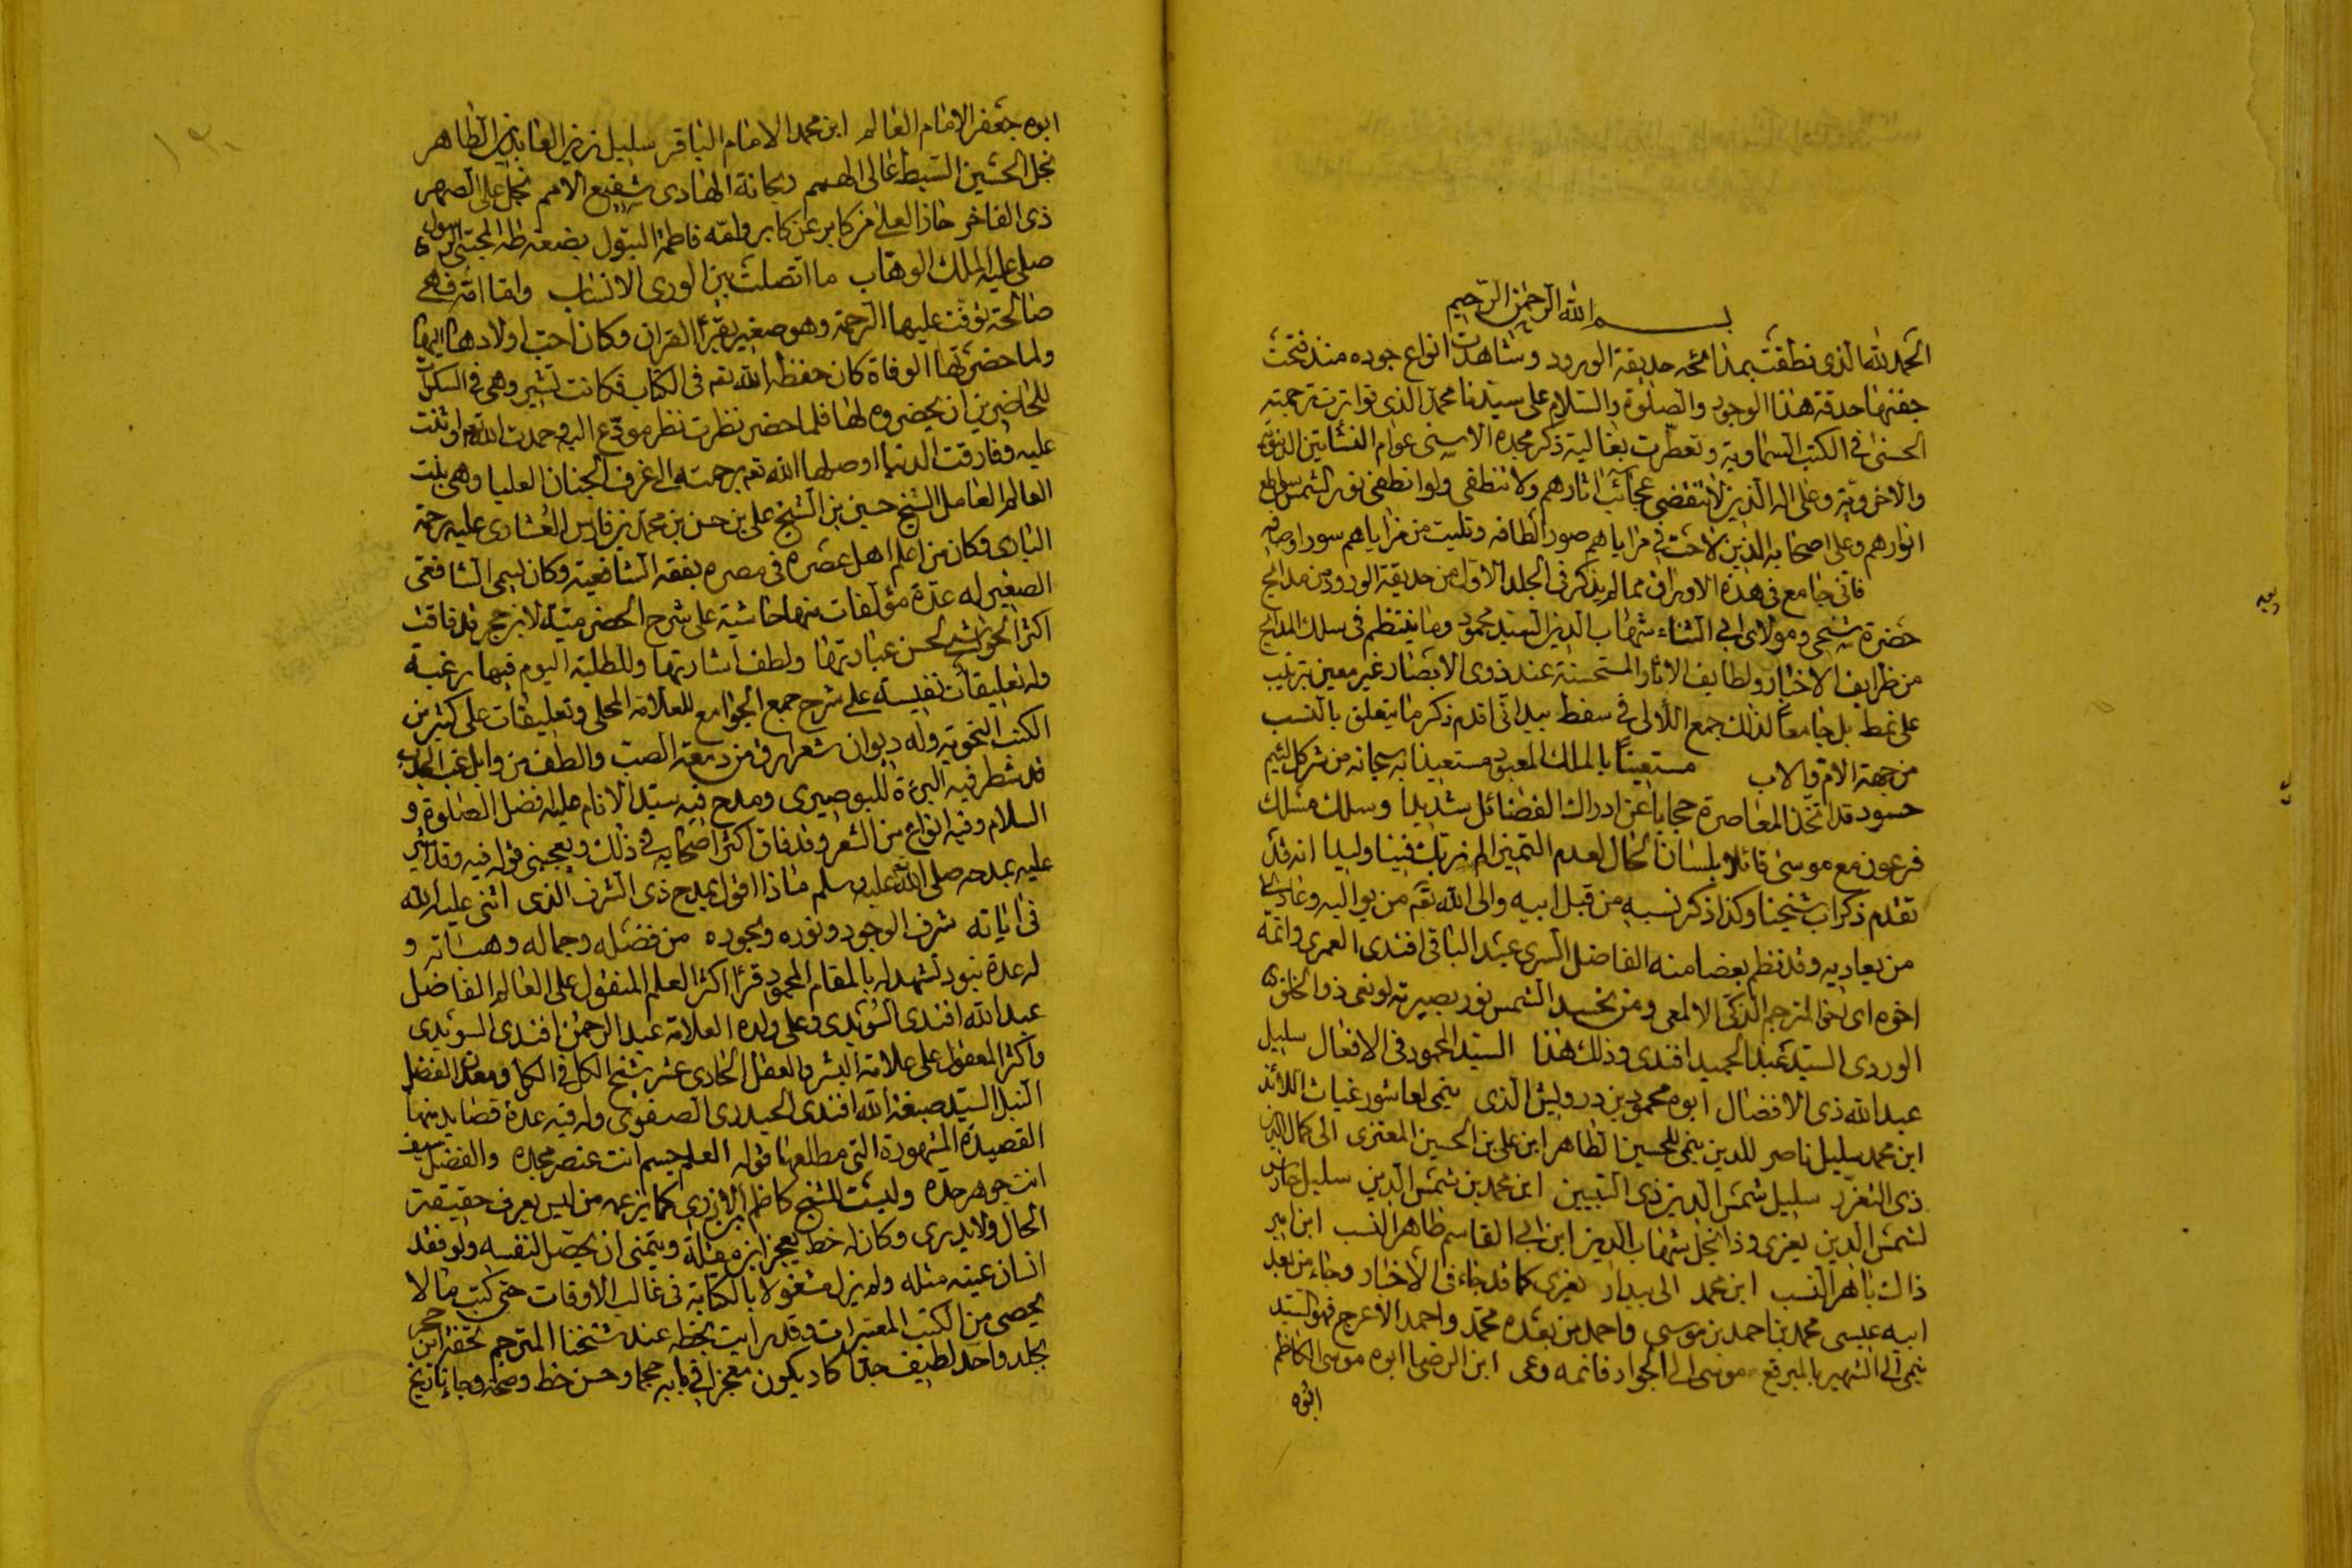 بسم الله الرحمن الرحيم
الحمد لله الذي نطقت بمدائحه حديقة الورود وشاهدت انواع جوده منذ فتحت
جفنها حدقة هذا الوجود والصلوة والسلام على سيدنا محمد الذي تواترت ترجمته
الحسنى في الكتب السماوية وتعطرت بغالية ذكر مجده الاسنى عوالم النشأتين الدنيوية
والاخروية وعلى اله الذين لا تنقضي عجائب اثارهم ولا تنطفي ولو انطفى نور الشمس سواطع
انوارهم وعلى اصحابه الذين لاحت في مراياهم صور الطافه وتليت من مزاياهم سور اوصافه
فاني جامع في هذه الاوراق مما لم يذكر في الجلد الاول من حديقة الورود من مدايح
حضرة شيخي ومولاي ابي الثناء شهاب الدين السيد محمود وما ينتظم في سلك المدايح
من ظرايف الاخبار ولطايف الاثار المستحسنة عند ذوي الابصار غير معين ترتيب
على نمط بل جامعا لذلك جمع اللألى في سفط بيد اني اقدم ذكر ما يتعلق بالنسب
من جهة الام والاب مستعينا بالملك المعبود مستعيذا به سبحانه من شر كل لئيم
حسود قد اتخذ المعاصرة حجابا عن ادراك الفضائل شديدا وسلك مسلك
فرعون مع موسى قائلا بلسان الحال لعدم التميز الم نربك فينا وليدا انه قد
تقدم ذكر اب شيخنا وكذا ذكر نسبه من قبل ابيه والى الله تعم من يواليه وعادى
من يعاديه وقد نظم بعضا منه الفاضل السري عبد الباقي افندي العمري واتمه
اخوه اي اخو المترجم الذكي الالمعي ومن يحسد الشمس نور بصيرته لو نعى ذو الخلق
الوردي السيد عبد الحميد افندي وذلك هذا السيد المحمود في الافعال سليل
عبد الله ذي الافضال ابوه محمود بن درويش الذي ينمى لعاشور غياث اللائذ
ابن محمد سليل ناصر للدين ينمى للحسين الطاهر ابن علي بن الحسين المعتزى الى كمال الدين
ذي التعزز سليل شمس الدين ذي التبيين ابن محمد بن شمس الدين سليل حارس
لشمس الدين يعزى وذا نجل شهاب الدين ابن ابي القاسم طاهر النسب ابن امير
ذاك باهر النسب ابن محمد الى بيدار يعزى كما قد جاء في الاخبار وجاء من بعد
ابيه عيسى محمد بن احمد بن موسى واحمد من بعده محمد واحمد الاعرج فهو السيد
ينمى الى الشهير بالمبرقع موسى الى الجواد فانمه وعى ابن الرضا ابوه موسى الكاظم
ابوه
١٣٠
ابوه جعفر الامام العالم ابن محمد الامام الباقر سليل زين العابدين الطاهر
نجل الحسين السبط عالى الهمم ريحانة الهادي شفيع الامم نجل علي الصهر
ذي الفاخر حاز العلى من كابر عن كابر وامه فاطمة البتول بضعة طه المجتبى الرسول
صلى عليه الملك الوهاب ما اتصلت بين الورى الانساب واما امه فهي
صالحة توفت عليها الرحمة وهو صغير يقرأ القران وكان احب اولادها اليها
ولما حضرتها الوفاة كان حفظه الله تعم في الكتاب فكانت تشير وهي في السكرات
للحاضرين ان يحضروه لها فلما حضر نظرت نظر مودع اليه وحمدت الله تعم واثنت
عليه وفارقت الدنيا اوصلها الله تعم برحمته الى غرف الجنان العليا وهي بنت
العالم العامل الشيخ حسين بن الشيخ علي بن حسن بن محمد بن فارس العشاري عليه رحمة
الباري وكان من اعلم اهل عصره في مصره بفقه الشافعية وكان يسمى الشافعي
الصغير له عدة مؤلفات منها حاشية على شرح الحضرمية لابن حجر قد فاقت
اكثر الحواشي لحسن عبارتها ولطف اشارتها وللطلبة اليوم فيها رغبة
وله تعليقات نفيسة على شرح جمع الجوامع للعلامة المحلي وتعليقات على كثير من
الكتب النحوية وله ديوان شعر ارق من دمعة الصب والطف من وابل غب الجدب
قد شطر فيه البرءة للبوصيري ومدح فيه سيد الانام عليه افضل الصلوة و
السلام وفيه انواع من الشعر وقد فاق اكثر اصحابه في ذلك ويعجبني قوله فيه وقد اشير
عليه بمدحه صلى الله عليه وسلم ماذا اقول بمدح ذي الشرف الذي اثنى عليه الله
في اياته شرف الوجود ونوره وبجوده من فضله وجماله وهباته و
له عدة بنود تشهد له بالمقام المحمود قرأ اكثر العلم المنقول على العالم الفاضل
عبد الله افندي السويدي وعلى ولده العلامة عبد الرحمن افندي السويدي
واكثر المعقول على علامة البشر والعقل الحادي عشر شيخ الكل في الكل ومعدن الفضل
النبل السيد صبغة الله افندي الحيدري الصفوي وله فيه عدة قصايد منها
القصيدة المشهورة التي مطلعها قوله العلم جسم انت عنصر مجده والفضل سيف
انت جوهر حده وليست للشيخ كاظم الازري كما يزعمه من ليس يعرف حقيقة
الحال ولا يدري وكان له خط يعجز ابن مقلة ويتمنى ان يحصل لنفسه ولو فقد
انسان عينه مثله ولم يزل مشغولا بالكتابة في غالب الاوقات حتى كتب ما لا
يحصى من الكتب المعتبرات وقد رايت بخطه عند شيخنا المترجم تحفة ابن حجر
بجلد واحد لطيف جدا كاد يكون معجزا في بابه حجما وحسن خط وصحة وجاء تاريخ